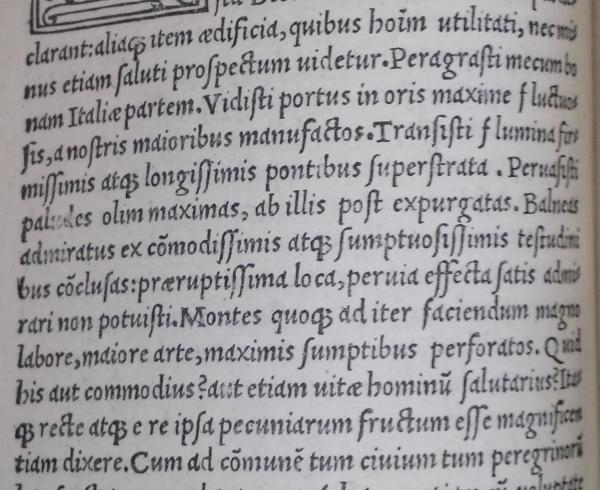 clarant: aliaq; item ædificia, quibus hoĩm utilitati, nec mi
nus etiam ſaluti proſpectum uidetur. Peragraſti mecum bo
nam Italiæ partem. Vidiſti portus in oris maxime fluctuos
ſis, a noſtris maioribus manufactos. Tranſiſti flumina fir
miſſimis atq; longiſſimis pontibus ſuperſtrata. Peruaſiſti
paludes olim maximas, ab illis poſt expurgatas. Balneas
admiratus ex cõmodiſſimis atq; ſumptuoſiſſimis teſtudini
bus cõcluſas: præruptiſſima loca, peruia effecta ſatis admi
rari non potuiſti. Montes quoq; ad iter faciendum magno
labore, maiore arte, maximis ſumptibus perforatos. Quid
his aut commodius? aut etiam uitæ hominũ ſalutarius? Ita
q; recte atq; e re ipſa pecuniarum fructum eſſe magnificen
tiam dixere. Cum ad cõmunẽ tum ciuium tum peregrinorũ